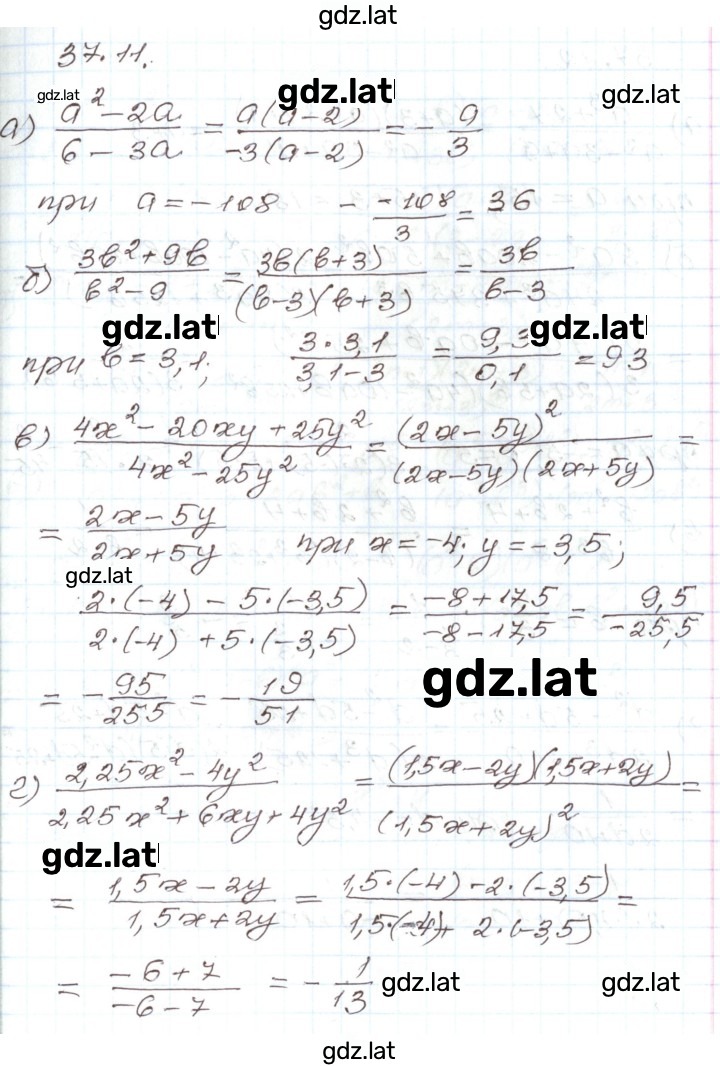 gdz.lat
37.11.
gdz.lat gdz.lat gdz.lat
а) (a² - 2a)/(6 - 3a) = a(a - 2)/(-3(a - 2)) = - a/3
при a = -108 - (-108)/3 = 36
б) (3b² + 9b)/(b² - 9) = 3b(b + 3)/((b - 3)(b + 3)) = 3b/(b - 3)
gdz.lat gdz.lat
при b = 3,1; (3 · 3,1)/(3,1 - 3) = 9,3/0,1 = 93
в) (4x² - 20xy + 25y²)/(4x² - 25y²) = (2x - 5y)²/((2x - 5y)(2x + 5y)) =
= (2x - 5y)/(2x + 5y) при x = -4; y = -3,5;
gdz.lat
(2·(-4) - 5·(-3,5))/(2·(-4) + 5·(-3,5)) = (-8 + 17,5)/(-8 - 17,5) = 9,5/(-25,5)
= - 95/255 = - 19/51
gdz.lat
г) (2,25x² - 4y²)/(2,25x² + 6xy + 4y²) = (1,5x - 2y)(1,5x + 2y)/(1,5x + 2y)² =
gdz.lat
= (1,5x - 2y)/(1,5x + 2y) = (1,5·(-4) - 2·(-3,5))/(1,5·(-4) + 2·(-3,5)) =
= (-6 + 7)/(-6 - 7) = - 1/13
gdz.lat gdz.lat
gdz.lat